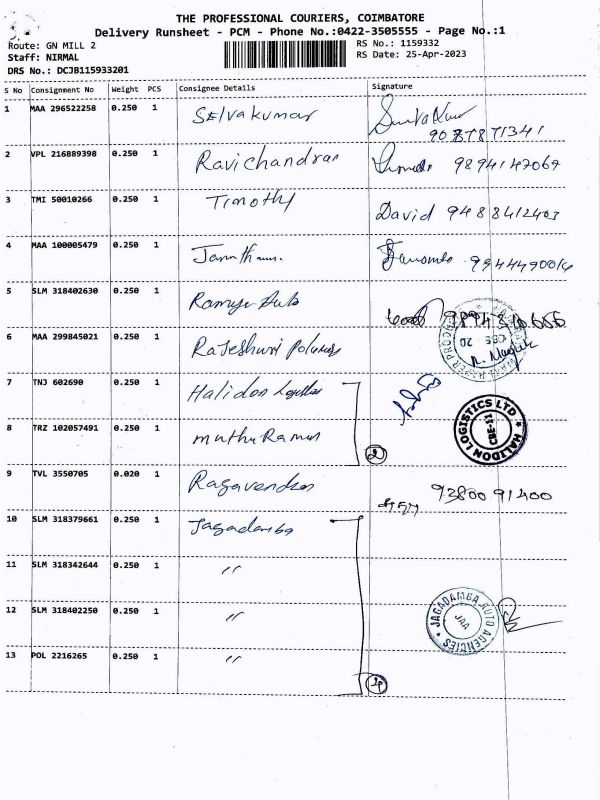 THE PROFESSIONAL COURIERS, COIMBATORE
Delivery Runsheet - PCM - Phone No.:0422-3505555 - Page No.:1
Route: GN MILL 2
RS No.: 1159332
Staff: NIRMAL
RS Date: 25-Apr-2023
DRS No.: DCJB115933201
S No Consignment No Weight PCS Consignee Details Signature
1 MAA 296522258 0.250 1 Selvakumar
2 VPL 216889398 0.250 1 Ravichandran
3 TMI 50010266 0.250 1 Timothy David 9488412403
4 MAA 100005479 0.250 1
5 SLM 318402630 0.250 1
6 MAA 299845021 0.250 1 Rajeshwri Polymers
7 TNJ 602690 0.250 1 Halidon Logistics
HALIDON LOGISTICS LTD
CBE-11
8 TRZ 102057491 0.250 1 muthu Raman
2
9 TVL 3550705 0.020 1 Ragavendra 93800 91400
10 SLM 318379661 0.250 1 Jagadamba
11 SLM 318342644 0.250 1 "
12 SLM 318402250 0.250 1 "
JAGADAMBA AUTO AGENCIES
JAA
13 POL 2216265 0.250 1 "
4